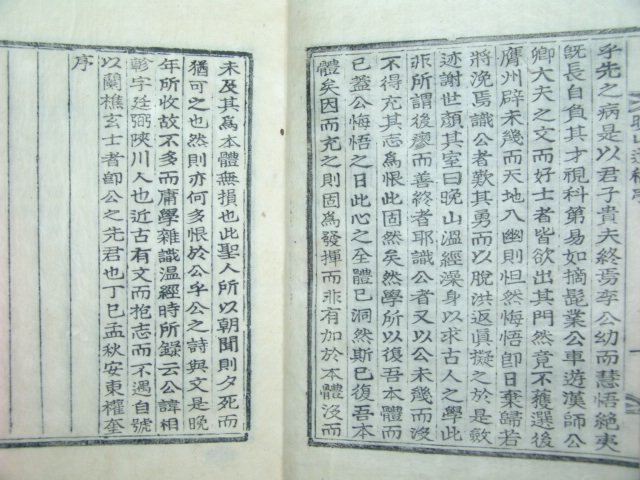 乎先之病是以君子貴夫終焉李公幼而慧悟絶夷
旣長自負其才視科第易如摘髭業公車遊漢師公
卿大夫之文而好士者皆欲出其門然竟不獲選後
膺州辟未幾而天地入幽則怛然悔悟卽日棄歸若
將浼焉識公者歎其勇而以脫洪返眞擬之於是斂
迹謝世顏其室曰晩山溫經澡身以求古人之學此
非所謂後瘳而善終者耶識公者又以公未幾而沒
不得充其志爲恨此固然矣然學所以復吾本體而
已蓋公悔悟之日此心之全體已洞然斯已復吾本
體矣因而充之則固爲發揮而非有加於本體沒而
未及其爲本體無損也此聖人所以朝聞則夕死而
猶可之也然則亦何多恨於公乎公之詩與文是晩
年所收故不多而庸學雜識溫經時所錄云公諱相
軫字廷弼陜川人也近古有文而抱志而不遇自號
以蘭樵玄士者卽公之先君也丁巳孟秋安東權奎
序